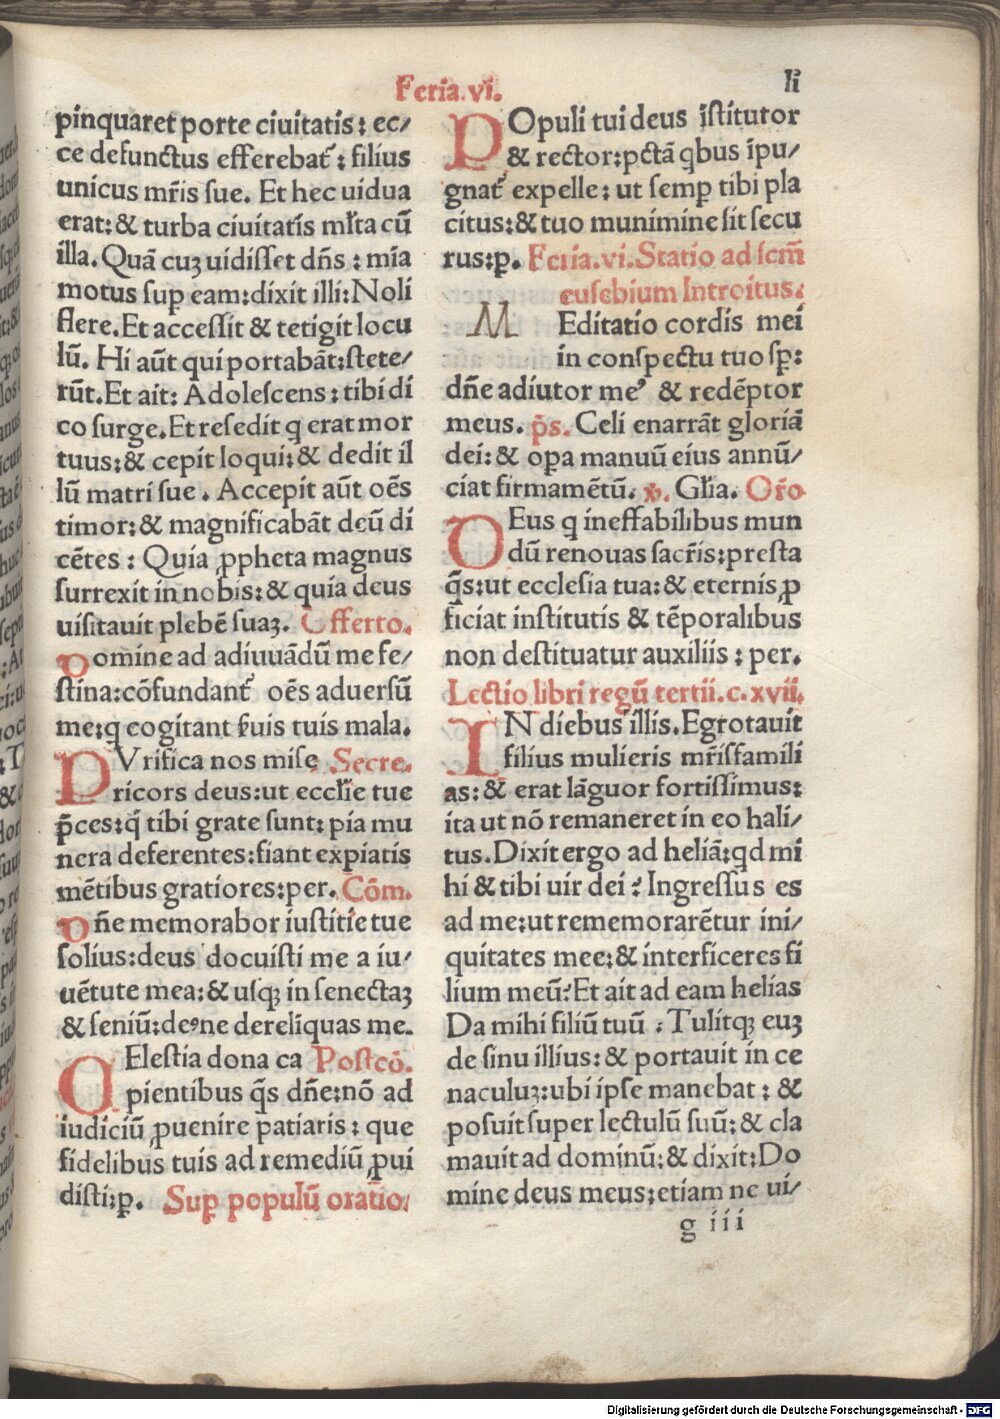 Feria.vi.
li
pinquaret porte ciuitatis: ec/
ce defunctus efferebat᷑: filius
unicus mr̃is sue. Et hec uidua
erat: & turba ciuitatis mƚta cũ
illa. Quã cuꝫ uidisset dñs: mĩa
motus suꝑ eam: dixit illi: Noli
flere. Et accessit & tetigit locu
lũ. Hi aũt qui portabãt: stete/
rũt. Et ait: Adolescens: tibi di
co surge. Et resedit q erat mor
tuus: & cepit loqui: & dedit il
lũ matri sue. Accepit aũt oẽs
timor: & magnificabãt deũ di
cẽtes: Quia ꝓpheta magnus
surrexit in nobis: & quia deus
uisitauit plebẽ suaꝫ. Offerto.
Domine ad adiuuãdũ me fe/
stina: cõfundant᷑ oẽs aduersũ
me: q cogitant ẜuis tuis mala.
PVrifica nos mise Secre.
ricors deus: ut ecclĩe tue
p̃ces: q̃ tibi grate sunt: pia mu
nera deferentes: fiant expiatis
mẽtibus gratiores: per. Cõm.
Dñe memorabor iustitie tue
solius: deus docuisti me a iu/
uẽtute mea: & usqꝫ in senectaꝫ
& seniũ: deꝰ ne derelĩquas me.
CElestia dona ca Postcõ.
pientibus q̃s dñe: nõ ad
iudiciũ ꝓuenire patiaris: que
fidelibus tuis ad remediũ ꝓui
disti: ꝑ. Suꝑ populũ oratio.
POpuli tui deus ĩstitutor
& rector: pctã qbus ĩpu/
gnat᷑ expelle: ut semꝑ tibi pla
citus: & tuo munimine sit secu
rus: ꝑ. Feria.vi. Statio ad scm̃
eusebium Introitus.
MEditatio cordis mei
in conspectu tuo sꝑ:
dñe adiutor meꝰ & redẽptor
meus. p̃s. Celi enarrãt gloriã
dei: & oꝑa manuũ eius annũ/
ciat firmamẽtũ. ℣. Gl̃ia. Or̃o
DEus q ineffabilibus mun
dũ renouas sacr̃is: presta
q̃s: ut ecclesia tua: & eternis ꝓ
ficiat institutis & tẽporalibus
non destituatur auxiliis: per.
Lectio libri regũ tertii.c.xvii.
IN diebus illis. Egrotauit
filius mulieris mr̃isfamili
as: & erat lãguor fortissimus:
ita ut nõ remaneret in eo hali/
tus. Dixit ergo ad heliã: qd mi
hi & tibi uir dei? Ingressus es
ad me: ut rememorarẽtur ini/
quitates mee: & interficeres fi
lium meũ? Et ait ad eam helias
Da mihi filiũ tuũ: Tulitqꝫ euꝫ
de sinu illius: & portauit in ce
naculuꝫ: ubi ipse manebat: &
posuit super lectulũ suũ: & cla
mauit ad dominũ: & dixit: Do
mine deus meus: etiam ne ui/
g iii
Digitalisierung gefördert durch die Deutsche Forschungsgemeinschaft - DFG